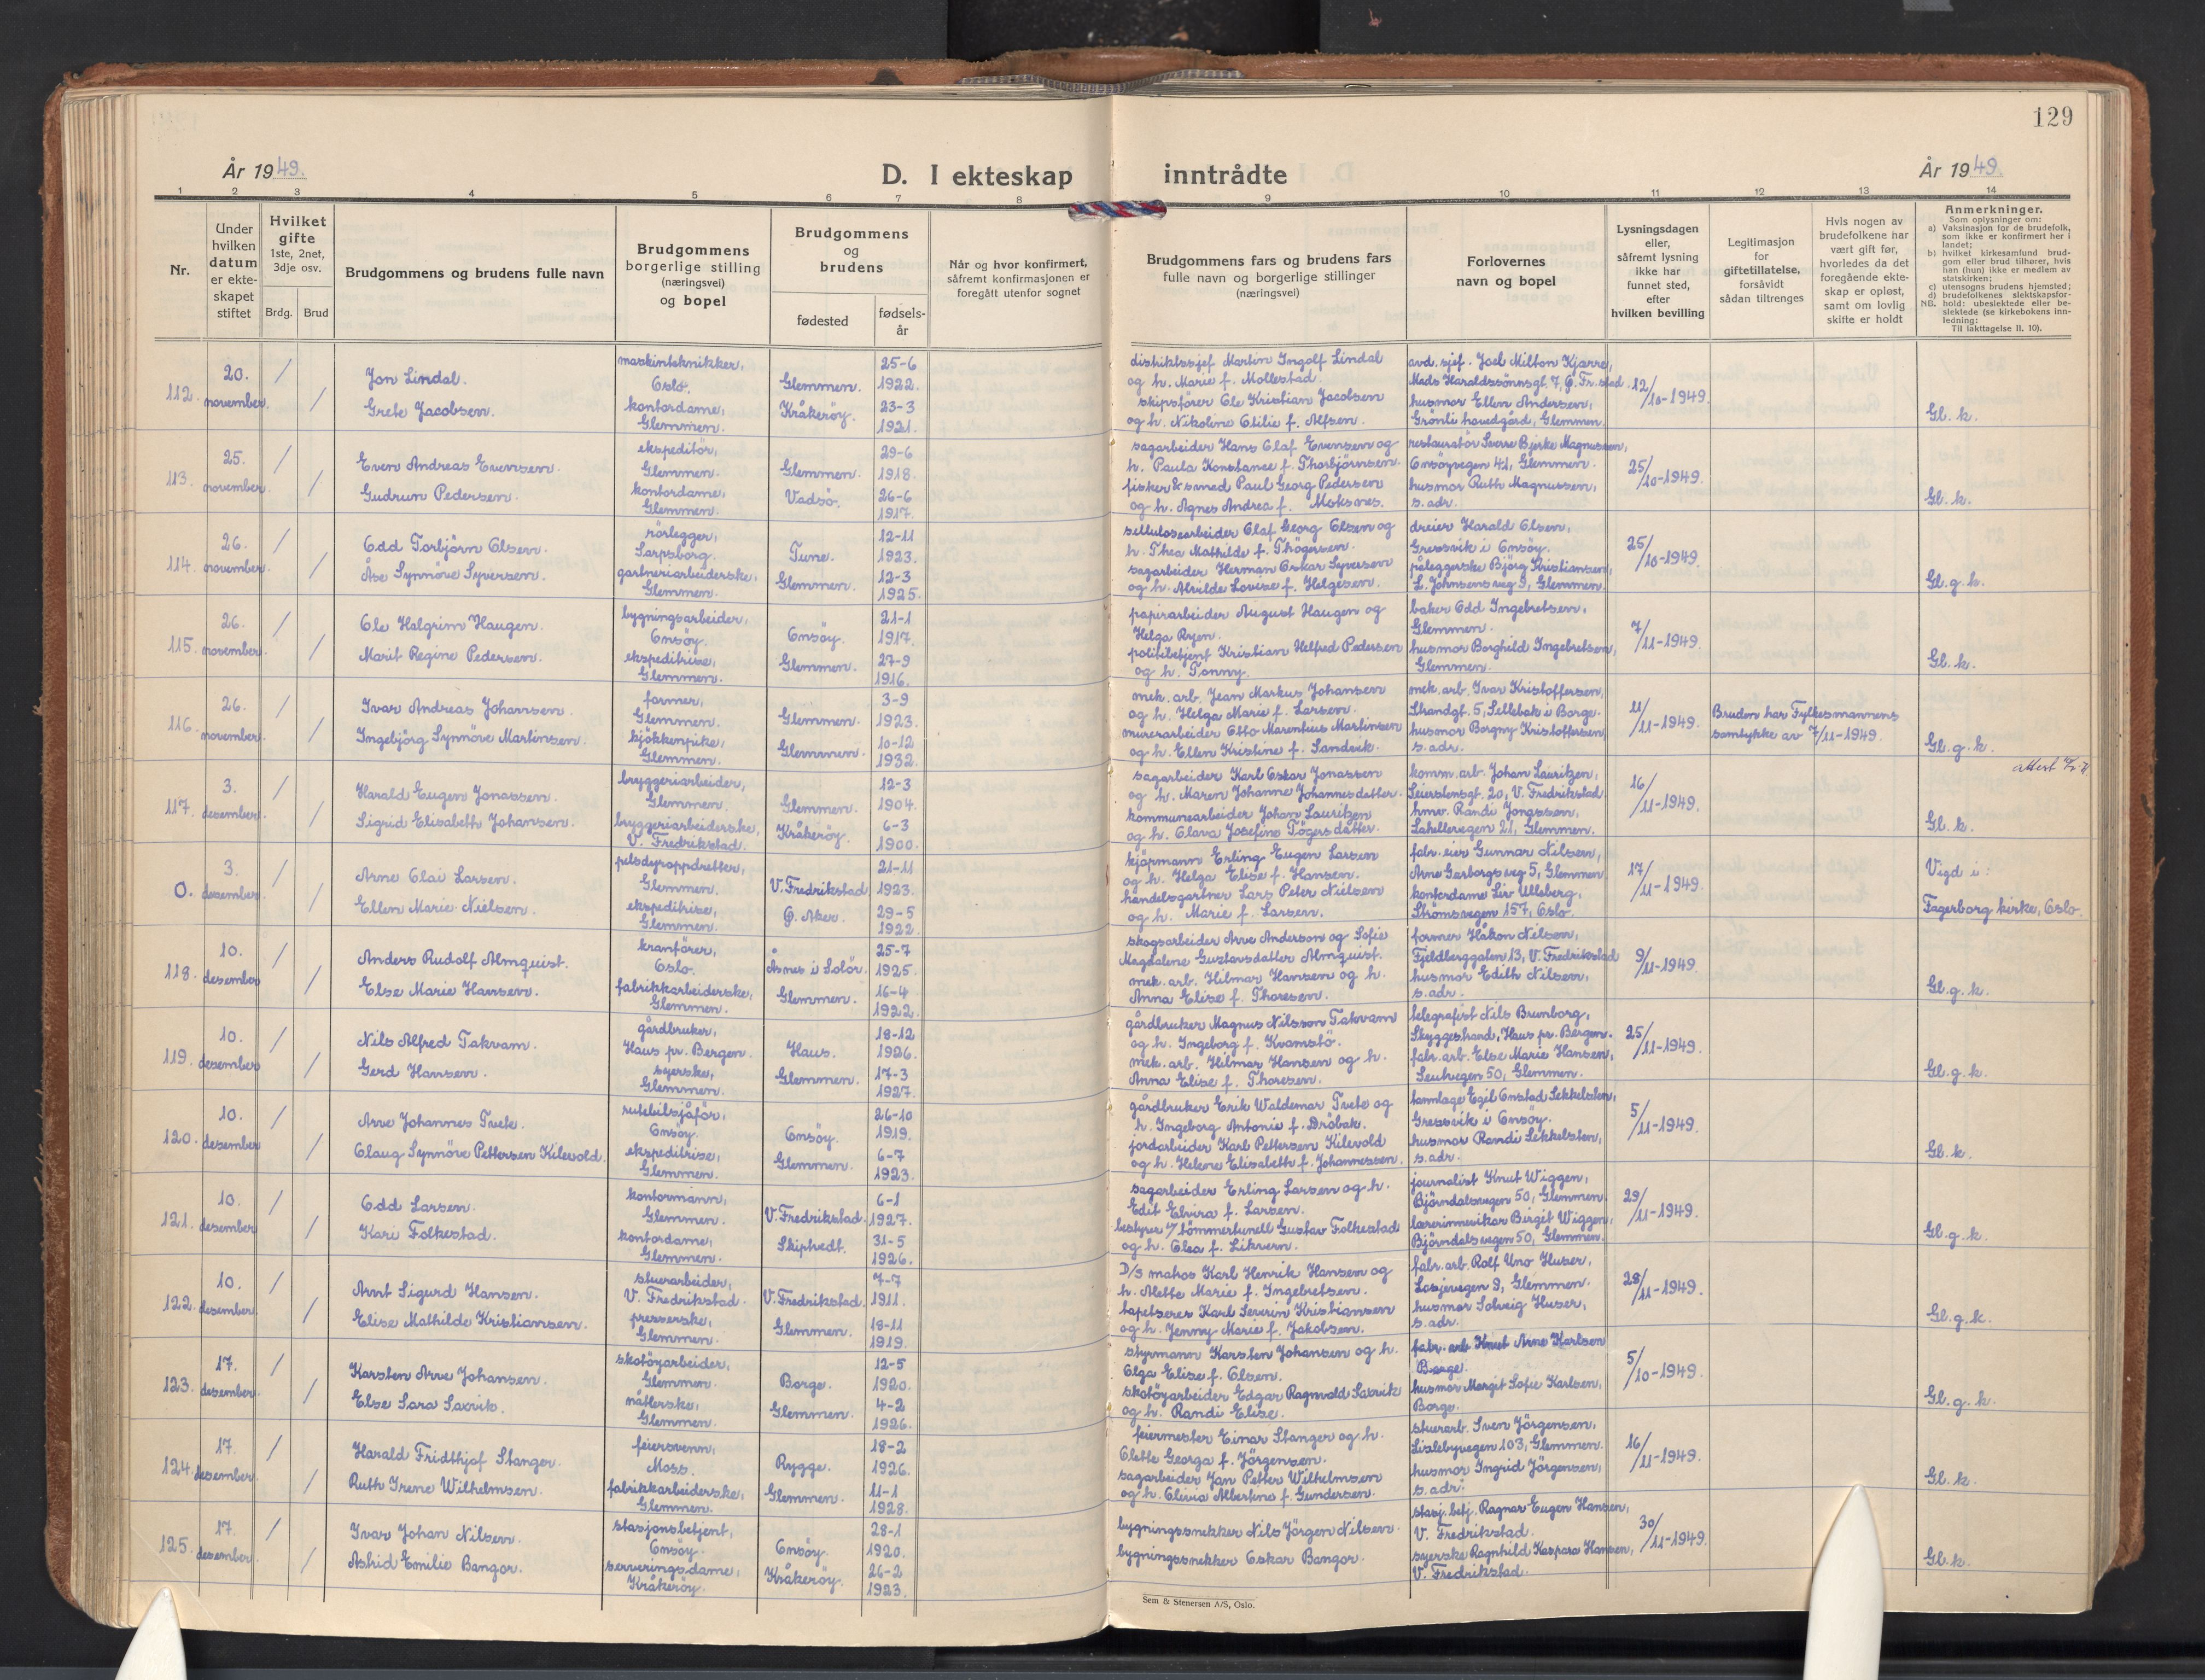 129
År 1949.
D. I ekteskap inntrådte
År 1949.
1 2 3 4 5 6 7 8 9 10 11 12 13 14
Nr.
Under hvilken datum er ekte-skapet stiftet
Hvilket gifte
1ste, 2net, 3dje osv.
Brdg. Brud
Brudgommens og brudens fulle navn
Brudgommens borgerlige stilling (næringsvei) og bopel
Brudgommens og brudens
fødested
fødsels-år
Når og hvor konfirmert, såfremt konfirmasjonen er foregått utenfor sognet
Brudgommens fars og brudens fars fulle navn og borgerlige stillinger (næringsvei)
Forlovernes navn og bopel
Lysningsdagen eller, såfremt lysning ikke har funnet sted, efter hvilken bevilling
Legitimasjon for giftetillatelse, forsåvidt sådan tiltrenges
Hvis nogen av brudefolkene har vært gift før, hvorledes da det foregående ekte-skap er opløst, samt om lovlig skifte er holdt
Anmerkninger.
Som oplysninger om:
a) Vaksinasjon for de brudefolk, som ikke er konfirmert her i landet;
b) hvilket kirkesamfund brud-gom eller brud tilhører, hvis han (hun) ikke er medlem av statskirken;
c) utensogns brudens hjemsted;
d) brudefolkenes slektskapsfor-hold: ubeslektede eller be-slektede (se kirkebokens inn-ledning:
NB. Til iakttagelse II. 10).
112. 20. november. / /
Jon Lindal.
Grete Jacobsen.
maskintekniker,
Oslo.
kontordame,
Glemmen.
Glemmen.
Kråkeröy.
25-6
1922.
23-3
1921.
distriktssjef Martin Ingolf Lindal
og h. Marie f. Mollestad.
skipsförer Ole Kristian Jacobsen
og h. Nikoline Otilie f. Alfsen.
avd. sjef. Joel Milton Kjærre,
Mads Haraldssönnsgt. 7, Ö. Fr.stad.
husmor Ellen Andersen,
Grönli hovedgård, Glemmen.
12/10-1949.
Gl. k.
113. 25. november. / /
Even Andreas Evensen.
Gudrun Pedersen.
ekspeditör,
Glemmen.
kontordame,
Glemmen.
Glemmen.
Vadsö.
29-6
1918.
26-6
1917.
sagarbeider Hans Olaf Evensen og
h. Paula Konstanse f. Thorbjörnsen.
fisker & smed Paul Georg Pedersen
og h. Agnes Andrea f. Moksnes.
restauratör Sverre Bjerke Magnussen,
Onsöyvegen 41, Glemmen.
husmor Ruth Magnussen,
s. adr.
25/10-1949.
Gl. k.
114. 26. november. / /
Odd Torbjörn Olsen.
Åse Synnöve Syversen.
rörlegger,
Sarpsborg.
gartneriarbeiderske,
Glemmen.
Tune.
Glemmen.
12-11
1923.
12-3
1925.
sellulosearbeider Olaf Georg Olsen og
h. Thea Mathilde f. Thögersen.
sagarbeider Herman Oskar Syversen
og h. Alvilde Lovise f. Helgesen.
dreier Harald Olsen,
Gressvik i Onsöy.
påleggerske Björg Kristiansen,
L. Johnsensveg 9, Glemmen.
25/10-1949.
Gl. g. k.
115. 26. november. / /
Ole Halgrim Haugen.
Marit Regine Pedersen.
bygningsarbeider,
Onsöy.
ekspeditrise,
Glemmen.
Onsöy.
Glemmen.
21-1
1917.
27-9
1916.
papirarbeider August Haugen og
Helga Ryen.
politibetjent Kristian Helfred Pedersen
og h. Tonny.
baker Odd Ingebretsen,
Glemmen.
husmor Borghild Ingebretsen,
Glemmen.
7/11-1949.
Gl. k.
116. 26. november. / /
Ivar Andreas Johansen.
Ingebjörg Synnöve Martinsen.
former,
Glemmen.
kjökkenpike,
Glemmen.
Glemmen.
Glemmen.
3-9
1923.
10-12
1932.
mek. arb. Jean Markus Johansen
og h. Helga Marie f. Larsen.
murerarbeider Otto Marentius Martinsen
og h. Ellen Kristine f. Sandvik.
mek. arb. Ivar Kristoffersen,
Strandgt. 5, Sellebak i Borge.
husmor Borgny Kristoffersen,
s. adr.
11/11-1949.
Bruden har Fylkesmannens
samtykke av 7/11-1949.
Gl. g. k.
117. 3. desember. / /
Harald Eugen Jonassen.
Sigrid Elisabeth Johansen.
bryggeriarbeider,
Glemmen.
bryggeriarbeiderske,
V. Fredrikstad.
Glemmen.
Kråkeröy.
12-3
1904.
6-3
1900.
sagarbeider Karl Oskar Jonassen
og h. Maren Johanne Johannesdatter.
kommunearbeider Johan Lauritzen
og h. Olava Josefine Tögersdatter.
komm. arb. Johan Lauritzen,
Leierstensgt. 20, V. Fredrikstad.
hmr. Randi Jonassen,
Lahellevegen 21, Glemmen.
16/11-1949.
attest
Gl. k.
0. 3. desember. / /
Arne Olai Larsen.
Ellen Marie Nielsen.
pelsdyroppdretter,
Glemmen.
ekspeditrise,
Glemmen.
V. Fredrikstad
Ö. Aker.
21-11
1923.
29-5
1922.
kjöpmann Erling Eugen Larsen
og h. Helga Elise f. Hansen.
handelsgartner Lars Peter Nielsen
og h. Marie f. Larsen.
fabr. eier Gunnar Nilsen,
Arne Garborgsveg 5, Glemmen.
kontordame Liv Ulleberg,
Strömsvegen 157, Oslo.
17/11-1949.
Vigd i:
Fagerborg kirke, Oslo.
118. 10. desember / /
Anders Rudolf Almquist.
Else Marie Hansen.
kranförer,
Oslo.
fabrikkarbeiderske,
Glemmen.
Åsnes i Solör.
Glemmen.
25-7
1925.
16-4
1922.
skogsarbeider Arve Anderson og Sofie
Magdalene Gustavsdatter Almquist.
mek. arb. Hilmar Hansen og h.
Anna Elise f. Thoresen.
former Håkon Nilsen,
Fjeldberggaten 13, V. Fredrikstad
husmor Edith Nilsen,
s. adr.
9/11-1949.
Gl. g. k.
119. 10. desember / /
Nils Alfred Takvam.
Gerd Hansen.
gårdbruker,
Haus pr. Bergen.
syerske,
Glemmen.
Haus.
Glemmen.
18-12
1926.
17-3
1927.
gårdbruker Magnus Nilsson Takvam
og h. Ingeborg f. Kvamstö.
mek. arb. Hilmar Hansen og h.
Anna Elise f. Thoresen.
telegrafist Nils Brumborg,
Skyggestrand, Haus pr. Bergen.
fabr. arb. Else Marie Hansen,
Leutvegen 50, Glemmen.
25/11-1949.
Gl. g. k.
120. 10. desember / /
Arve Johannes Tvete.
Olaug Synnöve Pettersen Kilevold.
rutebilsjåför,
Onsöy.
ekspeditrise,
Glemmen.
Onsöy.
Glemmen.
26-10
1919.
6-7
1923.
gårdbruker Erik Waldemar Tvete og
h. Ingeborg Antonie f. Dröbak.
jordarbeider Karl Pettersen Kilevold
og h. Helene Elisabeth f. Johannessen.
tannlæge Egil Onstad Sekkelsten,
Gressvik i Onsöy.
husmor Randi Sekkelsten,
s. adr.
5/11-1949.
Gl. k.
121. 10. desember / /
Odd Larsen.
Kari Folkestad.
kontormann,
Glemmen.
kontordame,
Glemmen.
V. Fredrikstad.
Skiptvedt.
6-1
1927.
31-5
1926.
sagarbeider Erling Larsen og h.
Edit Elvira f. Larsen.
bestyrer v/ tömmertunell Gustav Folkestad
og h. Olea f. Likvern.
journalist Knut Wiggen,
Björndalsvegen 50, Glemmen.
lærerinnevikar Birgit Wiggen,
Björndalsvegen 50, Glemmen.
29/11-1949.
Gl. g. k.
122. 10. desember. / /
Arnt Sigurd Hansen.
Elise Mathilde Kristiansen.
stuerarbeider,
V. Fredrikstad.
presserske,
Glemmen.
V. Fredrikstad.
Glemmen.
7-7
1911.
18-11
1919.
D/S matros Karl Henrik Hansen og
h. Alette Marie f. Ingebretsen.
tapetserer Karl Severin Kristiansen
og h. Jenny Marie f. Jakobsen.
fabr. arb. Rolf Uno Huser,
Losjevegen 9, Glemmen.
husmor Solveig Huser,
s. adr.
28/11-1949.
Gl. g. k.
123. 17. desember. / /
Karsten Arve Johansen.
Else Sara Saxvik.
skotöyarbeider,
Glemmen.
nåtlerske,
Glemmen.
Borge.
Glemmen.
12-5
1920.
4-2
1926.
styrmann Karsten Johansen og h.
Olga Elise f. Olsen.
skotöyarbeider Edgar Ragnvald Saxvik
og h. Randi Elise.
fabr. arb. Knut Arne Karlsen
Borge.
husmor Margit Sofie Karlsen,
Borge.
5/10-1949.
Gl. g. k.
124. 17. desember. / /
Harald Fridthjof Stanger.
Ruth Irene Wilhelmsen.
feiersvenn,
Moss.
fabrikkarbeiderske,
Glemmen.
Rygge.
Glemmen.
18-2
1926.
11-1
1928.
feiermester Einar Stanger og h.
Olette Georga f. Jörgensen.
sagarbeider Jan Petter Wilhelmsen
og h. Olivia Albertine f. Gundersen.
stuerarb. Sven Jörgensen,
Lislebyvegen 103, Glemmen.
husmor Ingrid Jörgensen,
s. adr.
16/11-1949.
Gl. k.
125. 17. desember. / /
Ivar Johan Nilsen.
Astrid Emilie Bangor.
stasjonsbetjent,
Onsöy.
serveringsdame,
Kråkeröy.
Onsöy.
Kråkeröy.
28-1
1920.
26-2
1923.
bygningssnekker Nils Jörgen Nilsen.
bygningssnekker Oskar Bangor.
stasj. betj. Ragnar Eugen Hansen,
V. Fredrikstad.
syerske Ragnhild Kaspara Hansen,
V. Fredrikstad.
30/11-1949.
Gl. k.
Sem & Stenersen A/S, Oslo.